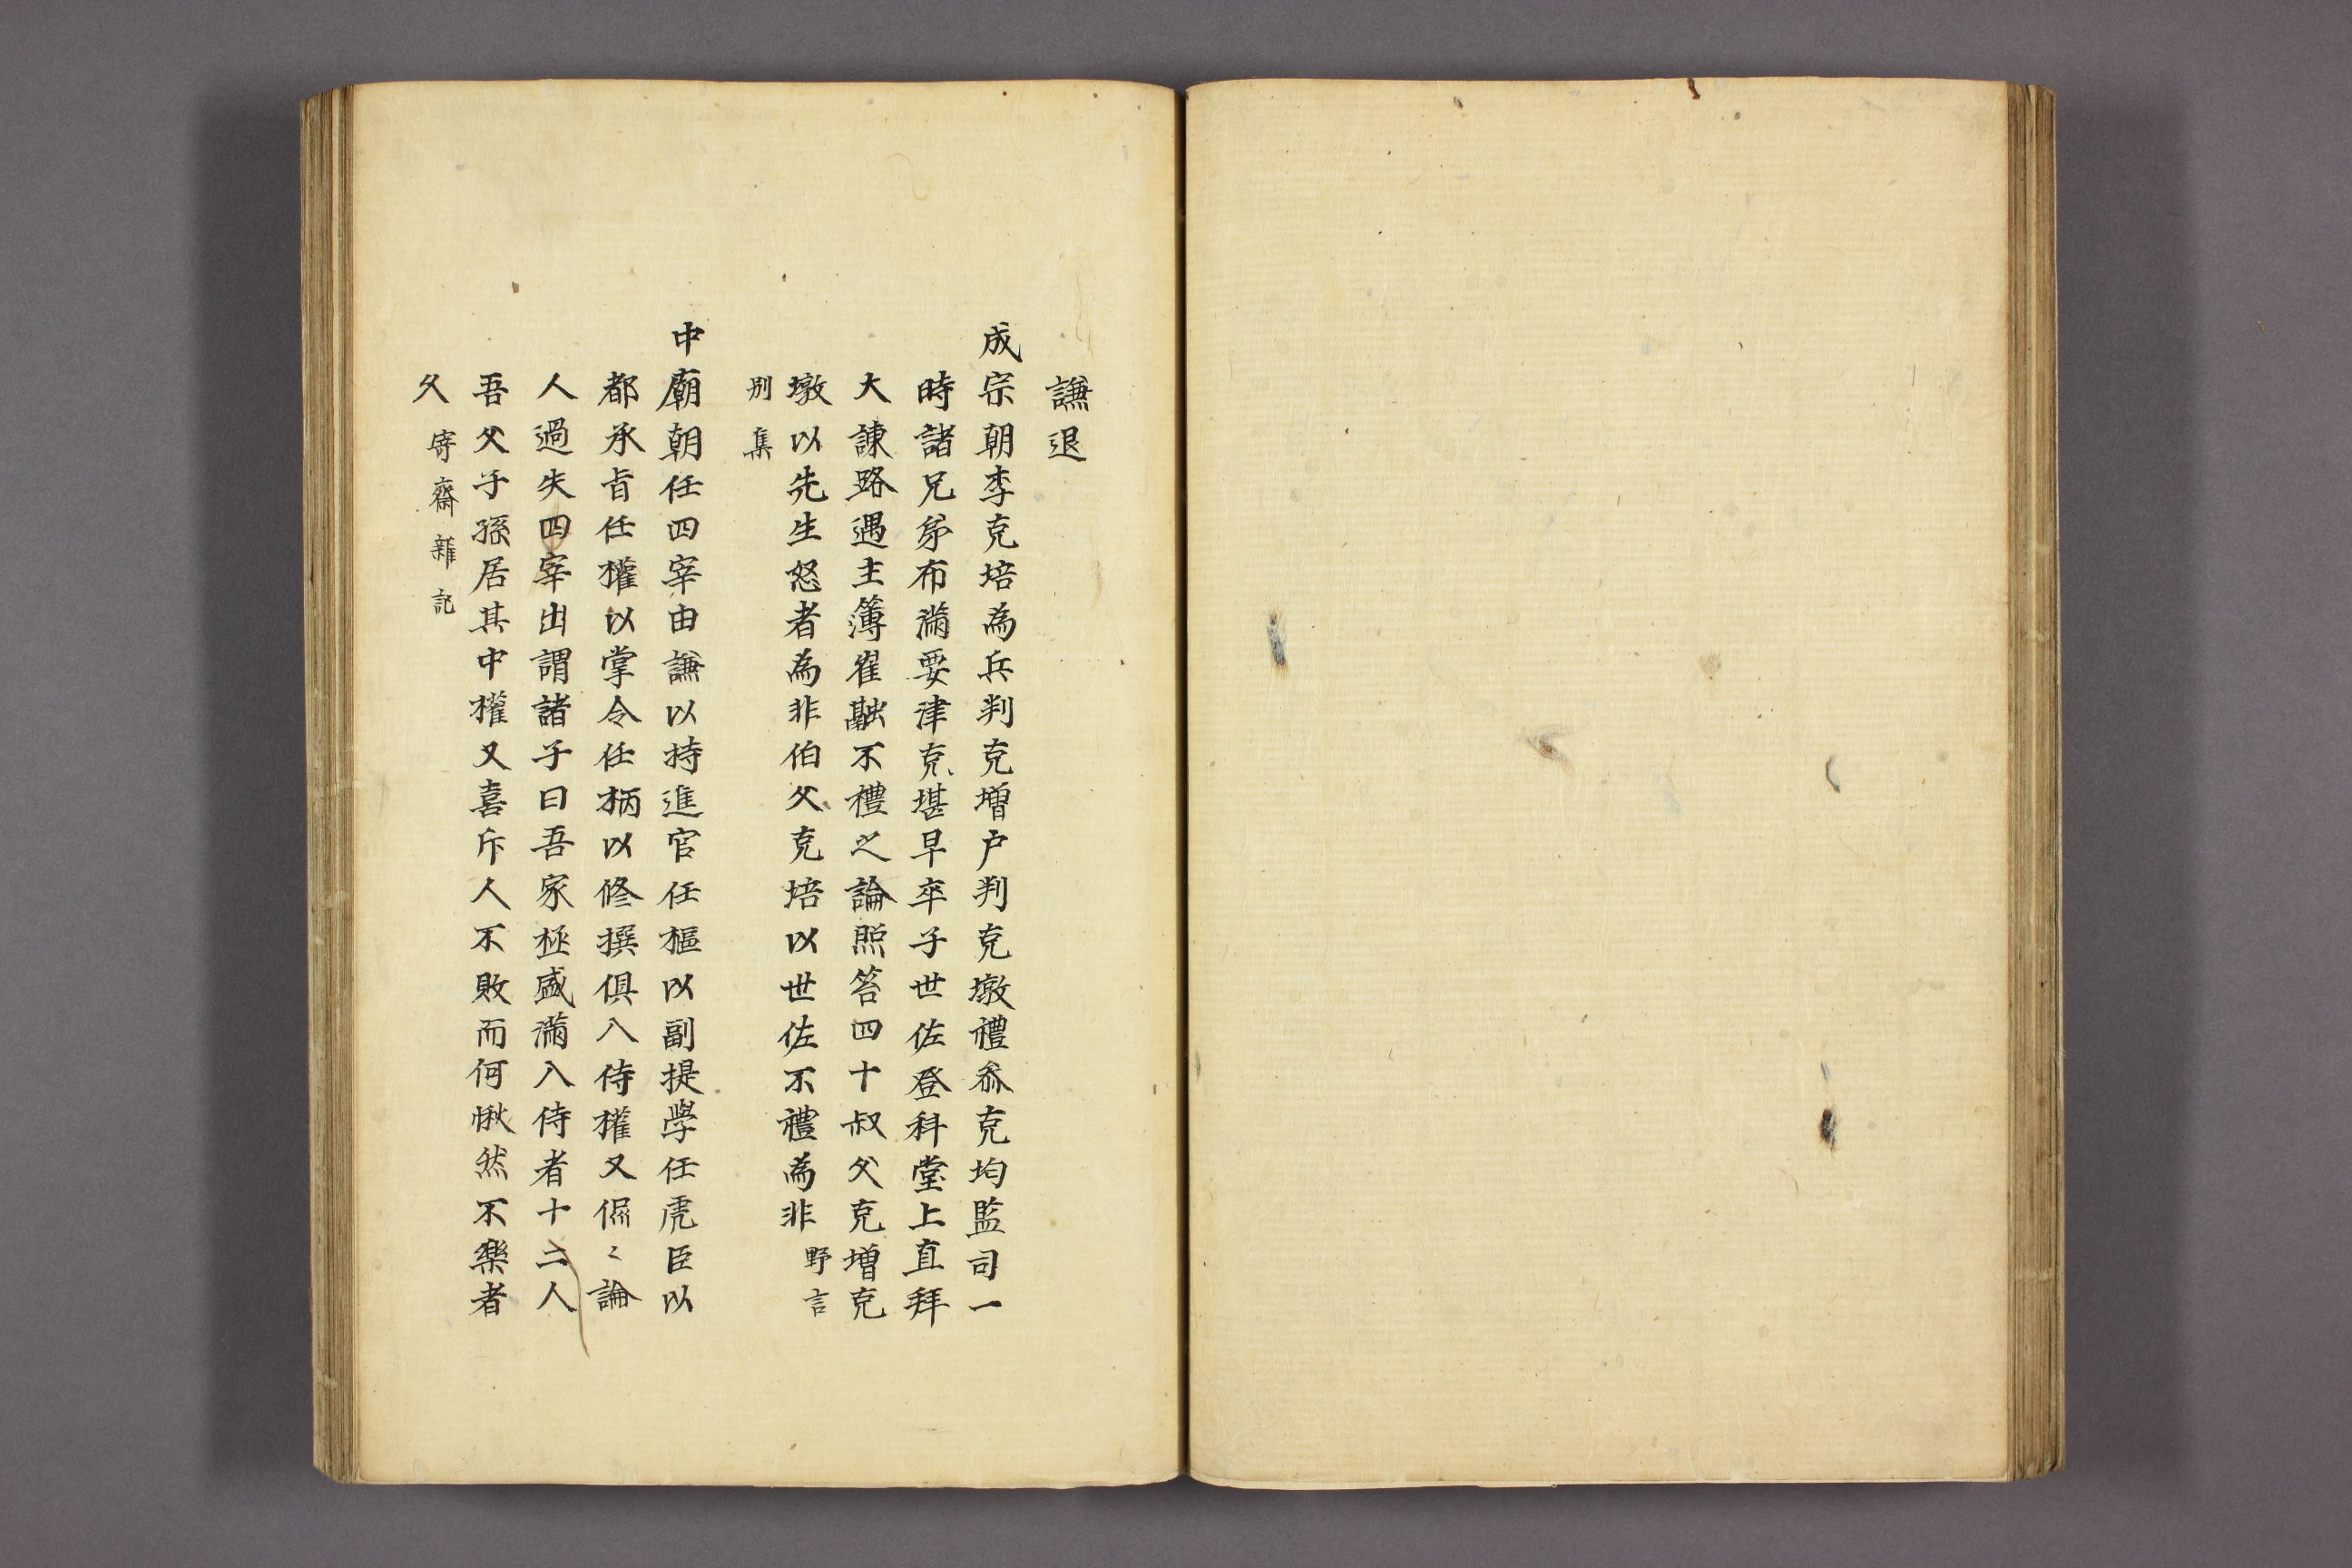 謙退
成宗朝李克培為兵判克增户判克墩禮叅克均監司一
時諸兄弟布滿要津克堪早卒子世佐登科堂上直拜
大諌路遇主簿崔融不禮之論照笞四十叔父克增克
墩以先生怒者為非伯父克培以世佐不禮為非野言
别集
中廟朝任四宰由謙以持進官任樞以副提學任虎臣以
都承旨任權以掌令任柄以修撰俱入侍權又侃〻論
人過失四宰出謂諸子曰吾家極盛滿入侍者十二人
吾父子孫居其中權又喜斥人不敗而何愀然不樂者
久寄齋雜記